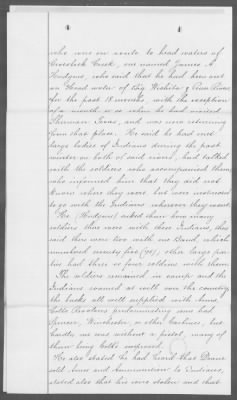 4
who were en route to head waters of
Creek, one named James A.
Hudgins, who said that he had been out
on Head water of Big Wichita & Pease Rivers
for the past 18 months, with the exception
of a month or so when he had visited
Sherman Texas, and was now returning
from that place. He said he had met
large bodies of Indians during the past
winter on both of said rivers, had talked
with the soldiers who accompanied them
who informed him that they did not
know where they were but were instructed
to go with the Indians wherever they went.
He (Hudgins) asked them how many
soldiers there were with these Indians, they
said there were two with one Band, which
numbered seventy five (75), other large par-
ties had three or four soldiers with them
The soldiers remained in camp and the
Indians roamed at will over the country,
the bucks all well supplied with Arms,
Colts Revolvers predominating some had
Spencer, Winchester or other Carbines, but
hardly one was without a pistol, many of
them being Colts improved.
He also stated he had lived that
sold Arms and Ammunition to Indians,
stated also that his were stolen and that